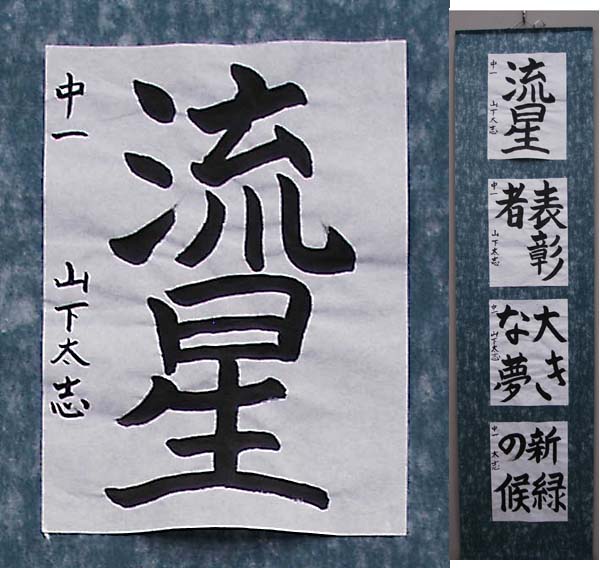 流星
中一 山下太志
流星
中一 山下太志
表彰
者
中一 山下太志
大き
な夢
中一 山下太志
新緑
の候
中一 太志